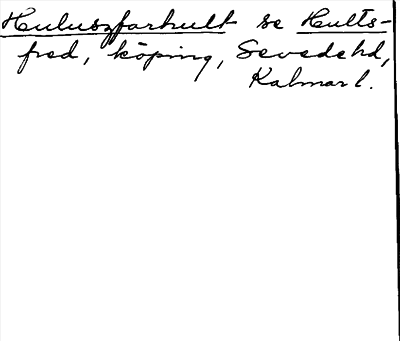 Huluszfarhult se Hults-
fred, köping, Sevede hd,
Kalmar l.